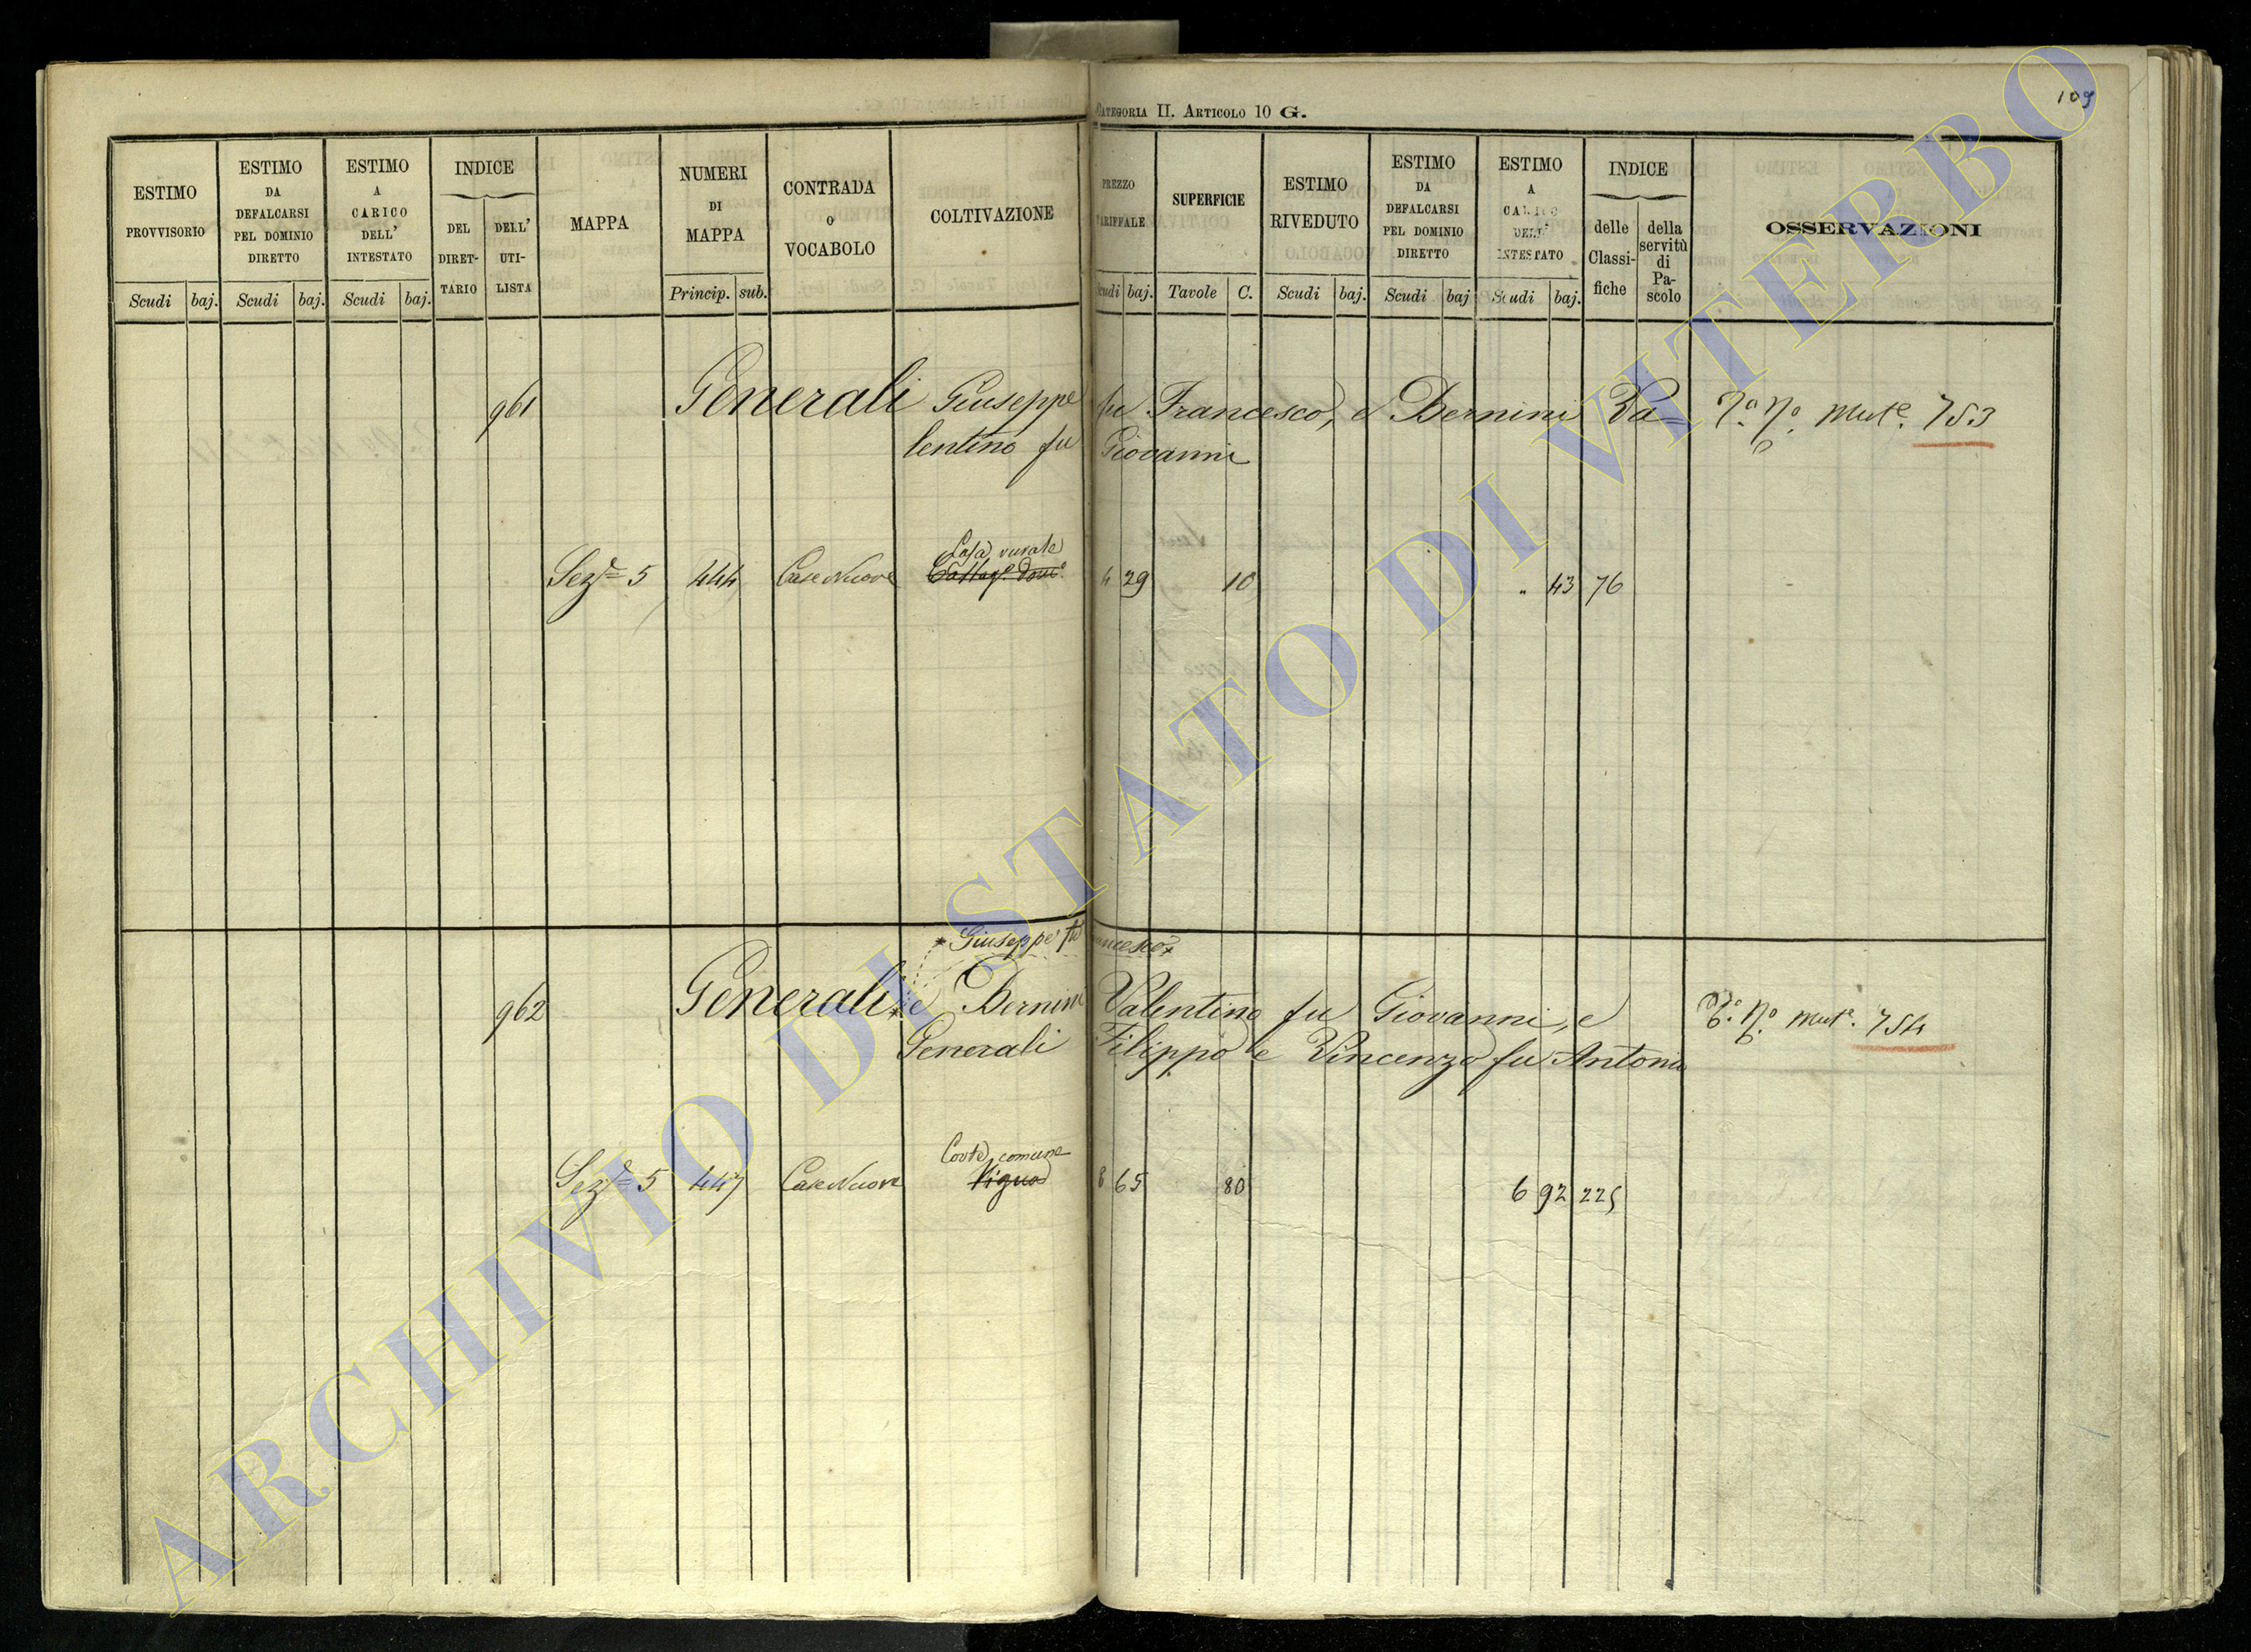 109
CATEGORIA II. ARTICOLO 10 G.
ESTIMO PROVVISORIO
Scudi baj.
ESTIMO DA DEFALCARSI PEL DOMINIO DIRETTO
Scudi baj.
ESTIMO A CARICO DELL' INTESTATO
Scudi baj.
INDICE
DEL DIRET-TARIO
DELL' UTI-LISTA
MAPPA
NUMERI DI MAPPA
Princip. sub.
CONTRADA o VOCABOLO
COLTIVAZIONE
PREZZO TARIFFALE
Scudi baj.
SUPERFICIE
Tavole C.
ESTIMO RIVEDUTO
Scudi baj.
ESTIMO DA DEFALCARSI PEL DOMINIO DIRETTO
Scudi baj
ESTIMO A CARICO DELL' INTESTATO
Scudi baj.
INDICE
delle Classi-fiche
della servitù di Pa-scolo
OSSERVAZIONI
961 Generali Giuseppe fu Francesco, e Bernini Va= Nº. Mutº. 753
lentino fu Giovanni
Casa rurale
Sezº= 5 444 Case Nuove 4 29 10 " 43 76
* Giuseppe fu Francesco *
962 Generali * e Bernini Valentino fu Giovanni, e Nº. mutº. 754
Generali Filippo e Vincenzo fu Antonio
Corte comune
Sezº= 5 447 Case Nuove Vigna 8 65 80 6 92 225
ARCHIVIO DI STATO DI VITERBO